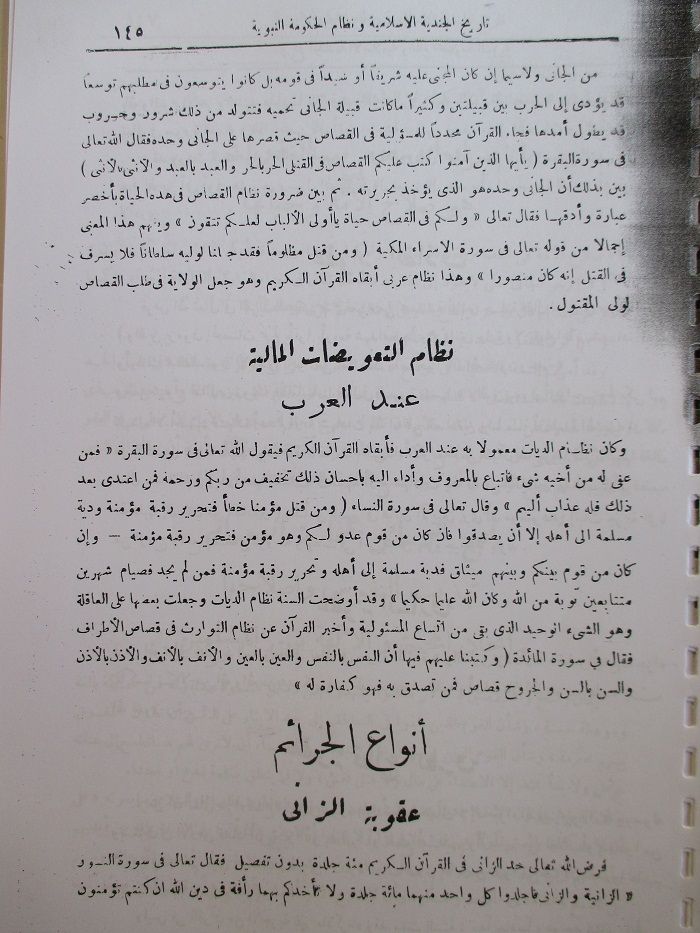 تاريخ الجندية الاسلامية ونظام الحكومة النبوية
١٤٥
من الجانى ولاسيما إن كان المجنى عليه شريفاً أو سيداً فى قومه بل كانوا يتوسعون فى مطلبهم توسعاً
قد يؤدى إلى الحرب بين قبيلتين وكثيراً ماكانت قبيلة الجانى تحميه فتتولد من ذلك شرور وحروب
قد يطول أمدها فجاء القرآن محدداً للمسؤلية فى القصاص حيث قصرها على الجانى وحده فقال الله تعالى
فى سورة البقرة ( يأيها الذين آمنوا كتب عليكم القصاص فى القتلى الحر بالحر والعبد بالعبد والانثى بالأنثى )
بين بذلك أن الجانى وحده هو الذى يؤخذ بجريرته . ثم بين ضرورة نظام القصاص فى هذه الحياة بأخصر
عبارة وأدقها فقال تعالى « ولكم فى القصاص حياة ياأولى الألباب لعلكم تتقون » ويفهم هذا المعنى
إجمالا من قوله تعالى فى سورة الاسراء المكية ( ومن قتل مظلوماً فقد جعلنا لوليه سلطاناً فلا يسرف
فى القتل إنه كان منصورا » وهذا نظام عربى أبقاه القرآن الكريم وهو جعل الولاية فى طلب القصاص
لولى المقتول .
نظام التعويضات المالية
عند العرب
وكان نظام الديات معمولا به عند العرب فأبقاه القرآن الكريم فيقول الله تعالى فى سورة البقرة « فمن
عفى له من أخيه شىء فاتباع بالمعروف وأداء اليه باحسان ذلك تخفيف من ربكم ورحمة فمن اعتدى بعد
ذلك فله عذاب أليم » وقال تعالى فى سورة النساء ( ومن قتل مؤمنا خطأ فتحرير رقبة مؤمنة ودية
مسلمة الى أهله إلا أن يصدقوا فان كان من قوم عدو لكم وهو مؤمن فتحرير رقبة مؤمنة — وإن
كان من قوم بينكم وبينهم ميثاق فدية مسلمة إلى أهله وتحرير رقبة مؤمنة فمن لم يجد فصيام شهرين
متتابعين توبة من الله وكان الله عليما حكيما » وقد أوضحت السنة نظام الديات وجعلت بعضها على العاقلة
وهو الشىء الوحيد الذى بقى من اتساع المسئولية وأخبر القرآن عن نظام التوراة فى قصاص الأطراف
فقال في سورة المائدة ( وكتبنا عليهم فيها أن النفس بالنفس والعين بالعين والأنف بالأنف والأذن بالأذن
والسن بالسن والجروح قصاص فمن تصدق به فهو كفارة له »
أنواع الجرائم
عقوبة الزانى
فرض الله تعالى حد الزانى فى القرآن الكريم مئة جلدة بدون تفصيل فقال تعالى فى سورة النور
« الزانية والزانى فاجلدوا كل واحد منهما مائة جلدة ولا تأخذكم بهما رأفة فى دين الله ان كنتم تؤمنون